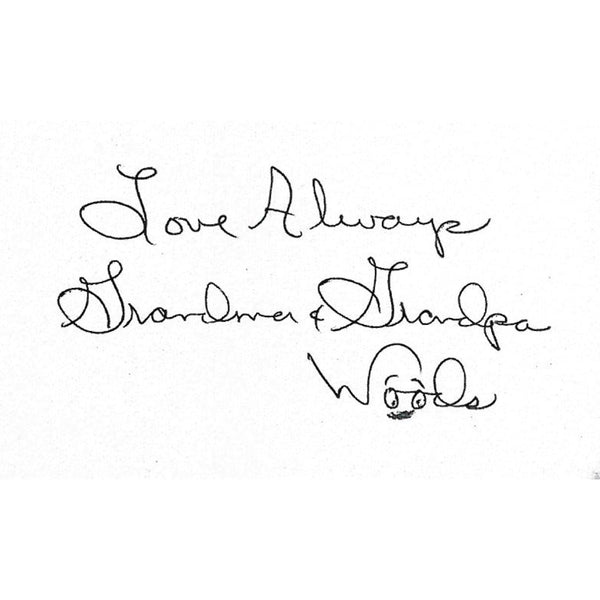 Love Always
Grandma & Grandpa
Woods